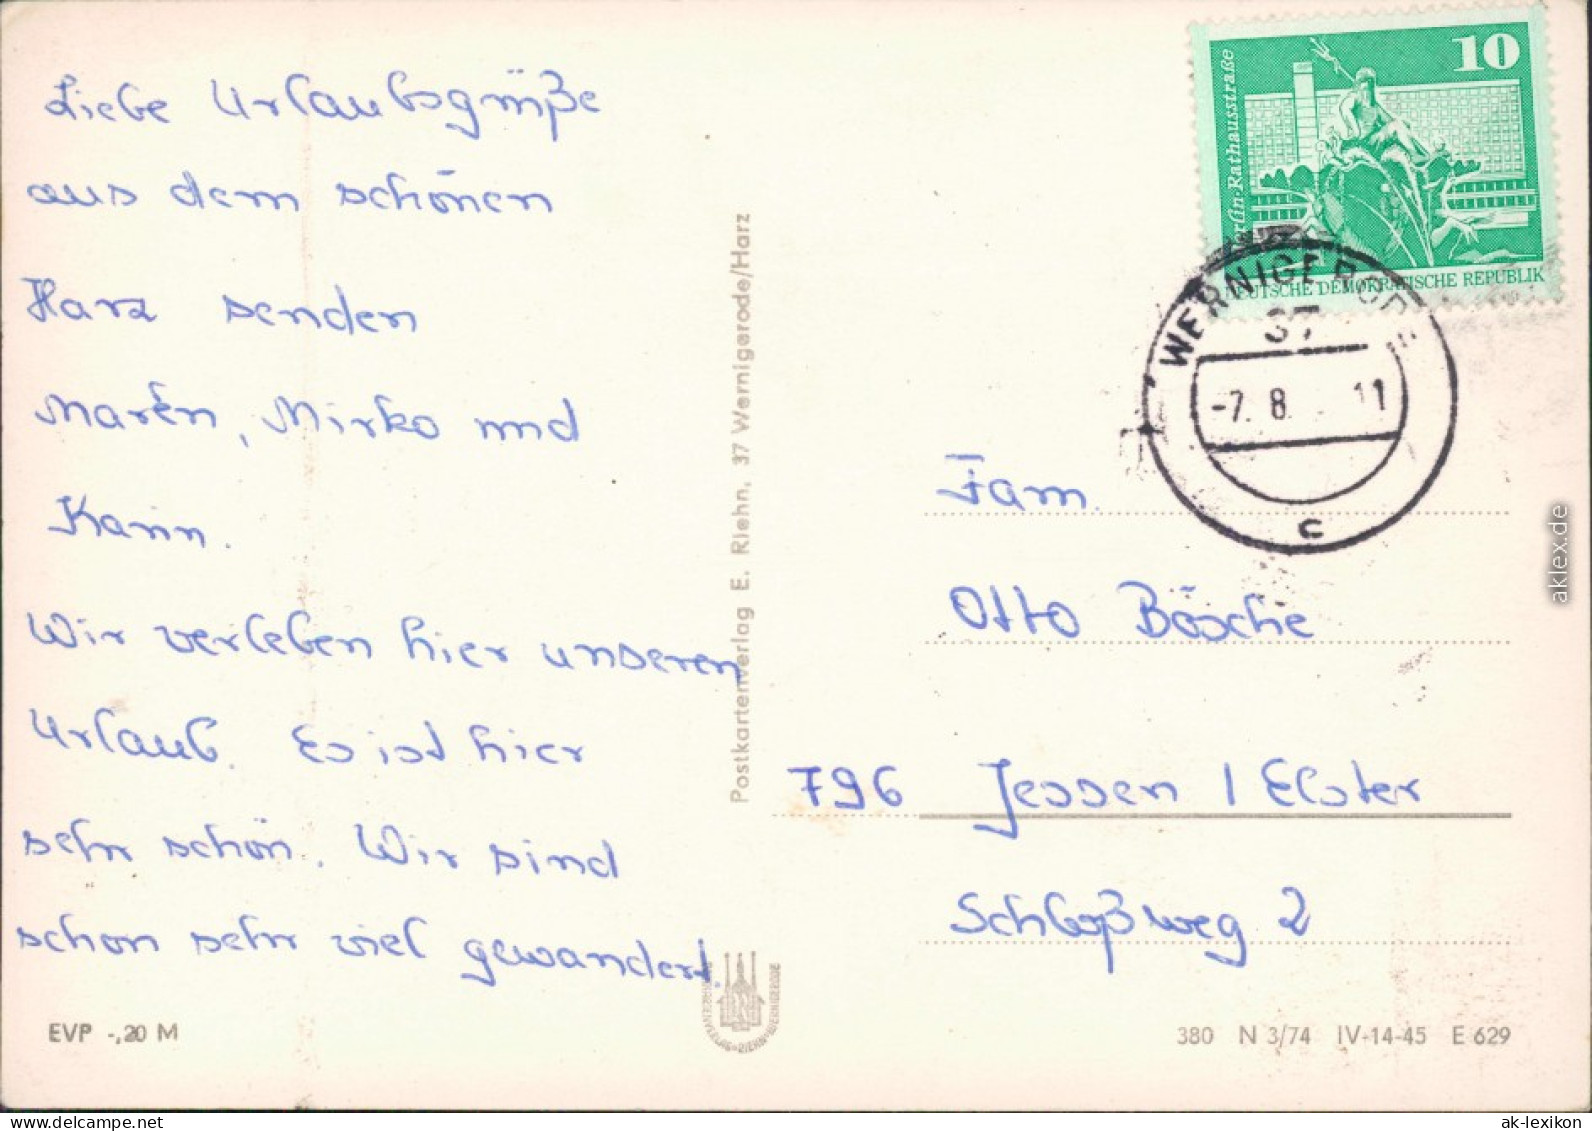 Liebe Urlaubsgrüße
aus dem schönen
Harz senden
Maren, Mirko und
Karin.
Wir verleben hier unseren
Urlaub. Es ist hier
sehr schön. Wir sind
schon sehr viel gewandert.
EVP -,20 M
Postkartenverlag E. Riehn, 37 Wernigerode/Harz
10
Berlin-Rathausstraße
DEUTSCHE DEMOKRATISCHE REPUBLIK
WERNIGERODE
37
-7. 8. 11
c
Fam.
Otto Bösche
796 Jessen / Elster
Schloßweg 2
380 N 3/74 IV-14-45 E 629
aklex.de
ak-lexikon